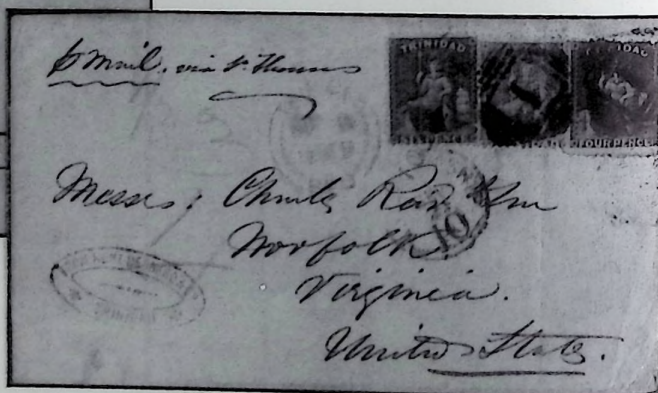 p Mail. via St. Thomas
TRINIDAD
SIX PENCE
FOUR PENCE
Messrs: Charles Reid & Son
10
Norfolk
Virginia.
United States.